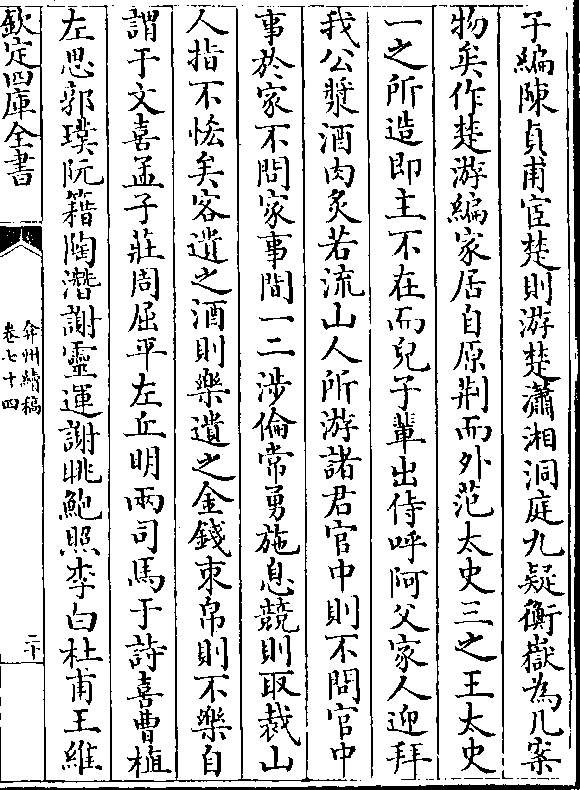 子編陳貞甫宦楚則游楚瀟湘洞庭九疑衡嶽為几案
物矣作楚游編家居自原荆而外范太史三之王太史
一之所造即主不在而兒子輩出侍呼阿父家人迎拜
我公漿酒肉炙若流山人所游諸君官中則不問官中
事於家不問家事間一二涉倫常勇施息競則取裁山
人指不恡矣客遺之酒則樂遺之金錢束帛則不樂自
謂于文喜孟子莊周屈平左丘明兩司馬于詩喜曹植
左思郭璞阮籍陶潛謝靈運謝朓鮑照李白杜甫王維
欽定四庫全書
弇州續稿
卷七十四
二十